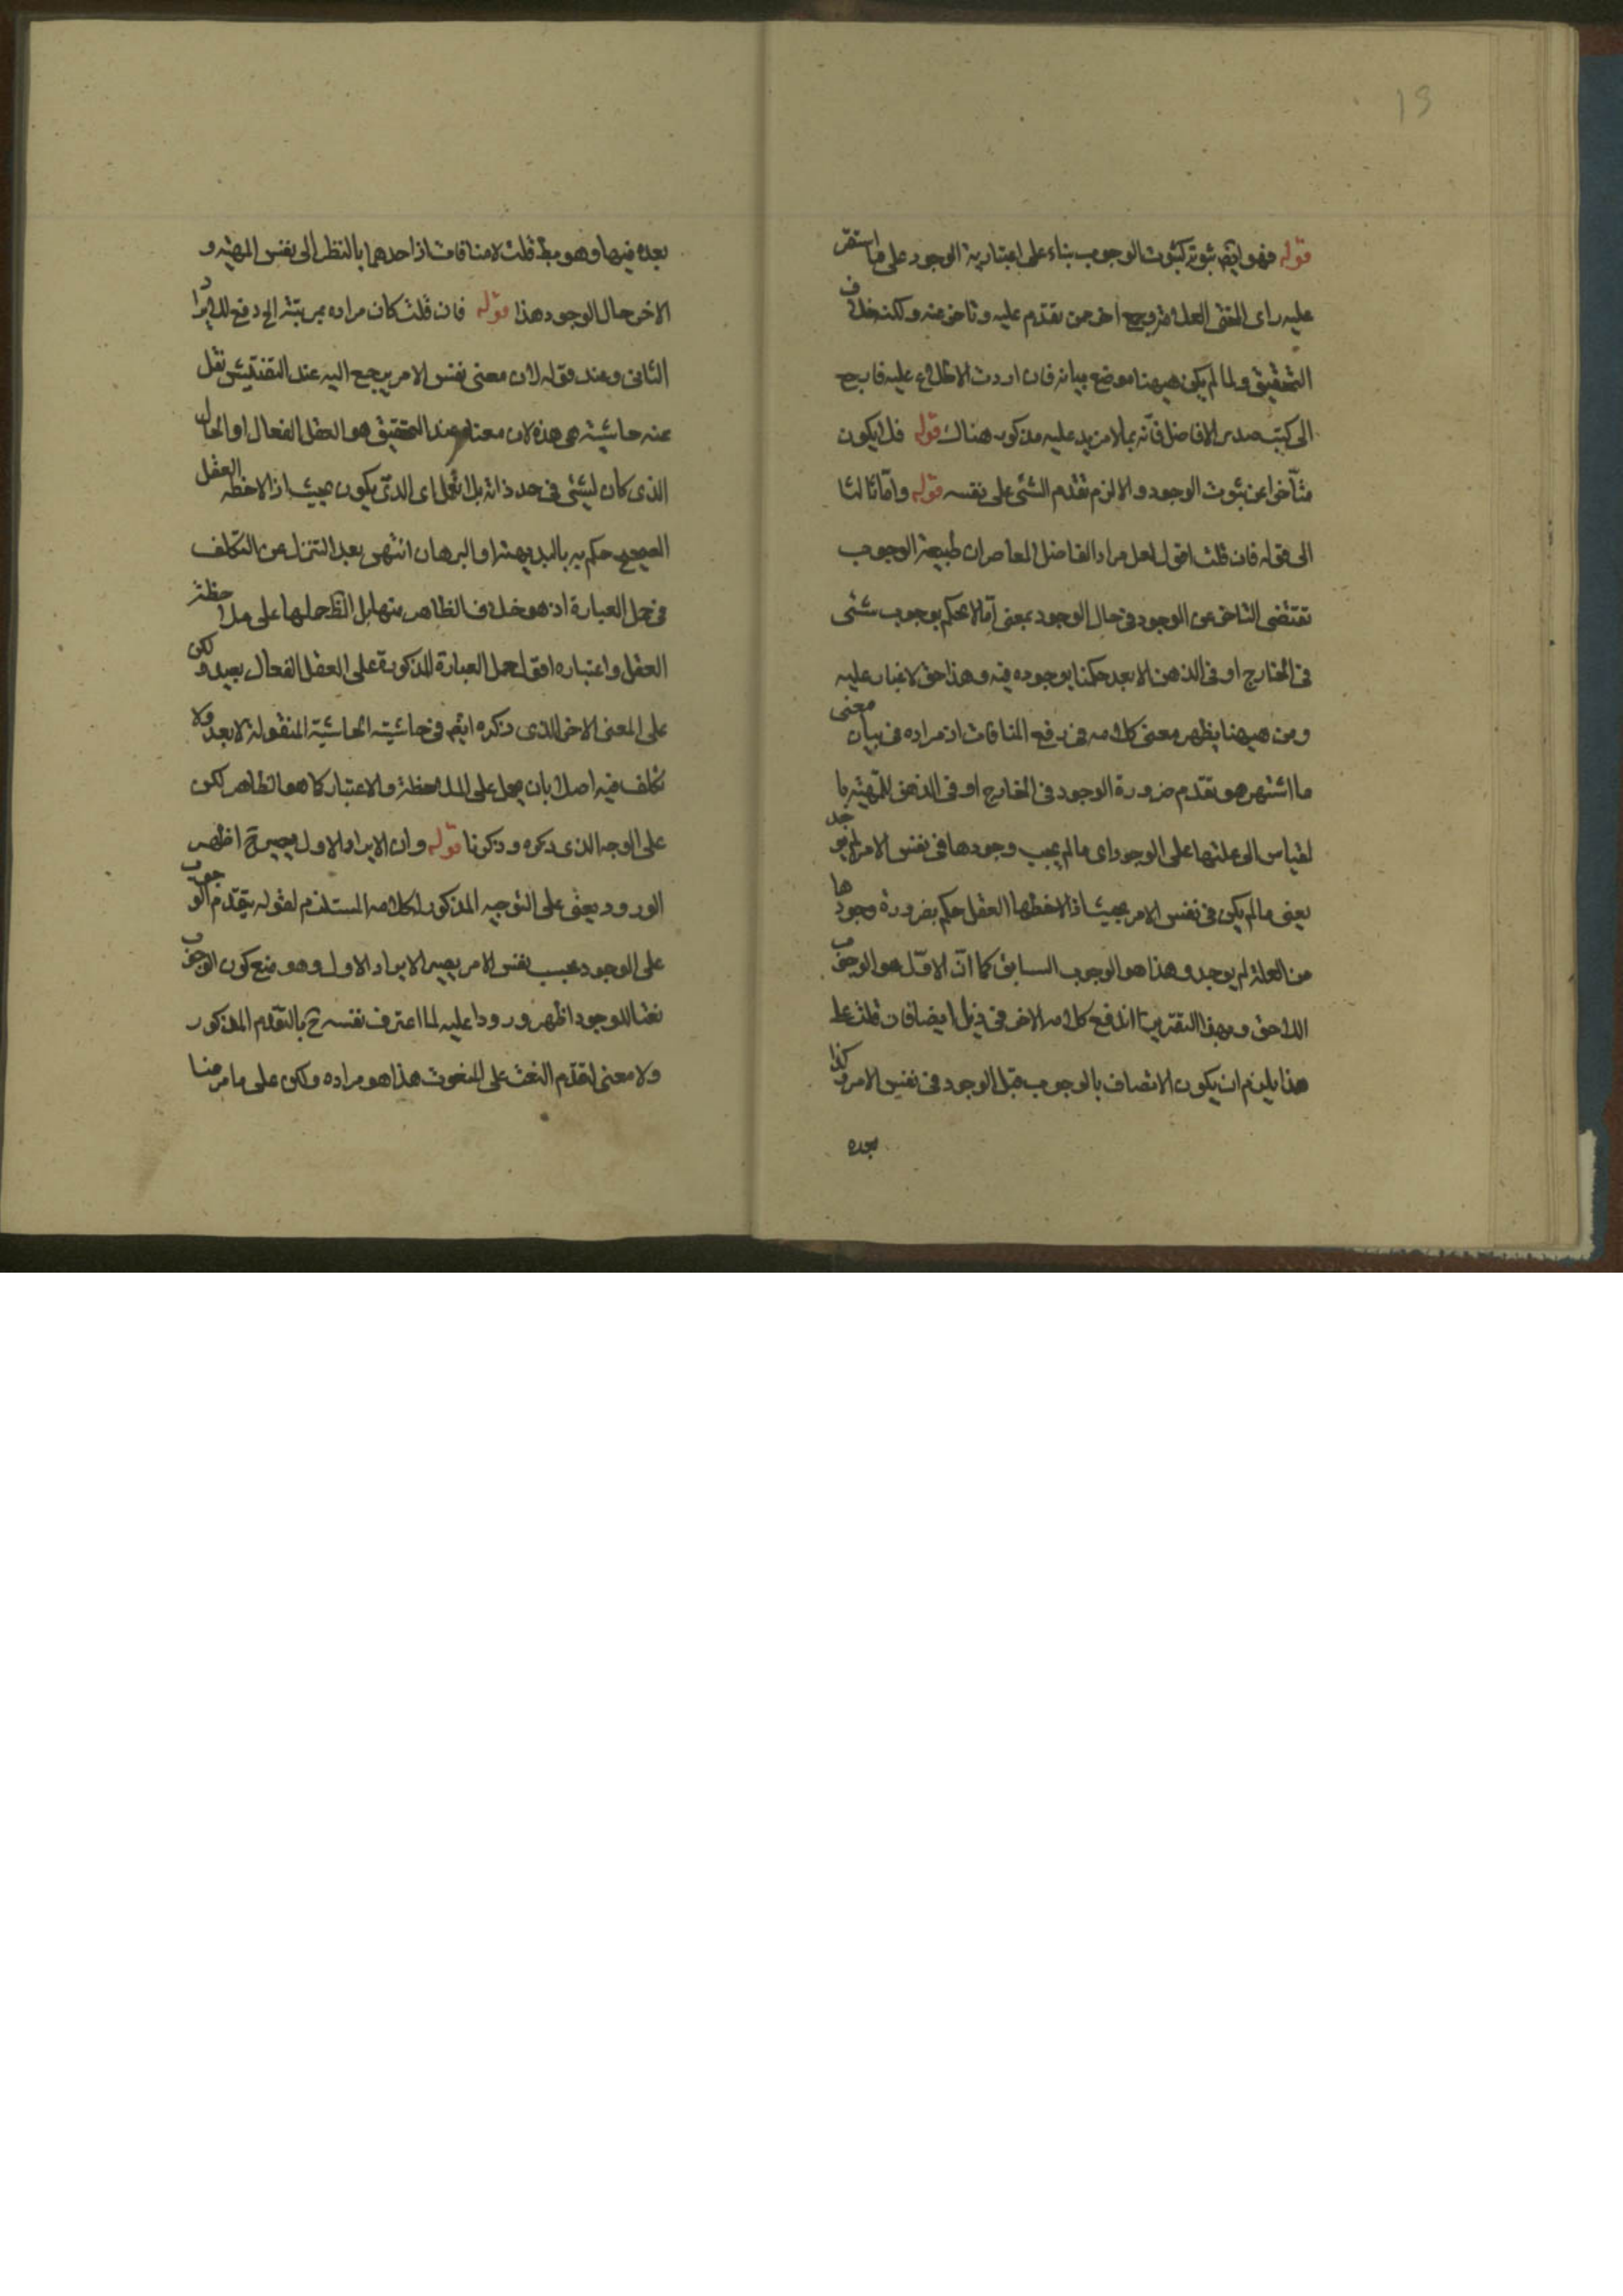 19
قوله فهو ايضا ثبوته كثبوت الوجوب بناء على اعتبارية الوجود على ما استقر
عليه راى المحقق العلامة وجمع اخر ممن تقدم عليه وتاخر عنه ولكنه خلاف
التحقيق ولما لم يكن هيهنا موضع بيانه فان اردت الاطلاع عليه فارجع
الى كتب صدر الافاضل فانه بما لا مزيد عليه مذكور هناك قوله فلا يكون
متأخرا عن ثبوت الوجود والا لزم تقدم الشئ على نفسه قوله واما ثالثا
الى قوله فان قلت اقول لعل مراد الفاضل المعاصر ان طبيعة الوجوب
تقتضى التاخر عن الوجود فى حال الوجود بمعنى انا لا نحكم بوجوب شئى
فى الخارج او فى الذهن الا بعد حكمنا بوجوده فيه وهذا حق لا غبار عليه
ومن هيهنا يظهر معنى كلامه فى دفع المنافات اذ مراده فى بيان معنى
ما اشتهر هو تقدم ضرورة الوجود فى الخارج او فى الذهن للمهية با
لقياس الى علتها على الوجود اى ما لم يجب وجودها فى نفس الامر لم يوجد
يعنى ما لم يكن فى نفس الامر بحيث اذا لاحظها العقل حكم بضرورة وجودها
من العلة لم يوجد وهذا هو الوجوب السابق كما ان الاول هو الوجوب
اللاحق وبهذا التقرير اندفع كلامه الاخر فى ذيل ايضا فان قلت على
هذا يلزم ان يكون الاتصاف بالوجوب قبل الوجود فى نفس الامر وكذا
بعده
بعده فيها وهو بط قلت لا منافات اذ احدهما بالنظر الى نفس المهية و
الاخر حال الوجود هذا قوله فان قلت كان مراده بمرتبة الخ دفع للايراد
الثانى وعند قوله لان معنى نفس الامر يرجع اليه عند التفتيش نقل
عنه حاشية هى هذه لان معناه عند التحقيق هو العقل الفعال او الحال
الذى كان لشئى فى حد ذاته بلا تعمل اى الذى يكون بحيث اذا لاحظه العقل
الصحيح حكم به بالبديهة او البرهان انتهى بعد التنزل عن التكلف
فى حمل العبارة اذ هو خلاف الظاهر منها بل الظ حملها على ملاحظة
العقل واعتباره اقول حمل العبارة المذكورة على العقل الفعال بعيد ولكن
على المعنى الاخر الذى ذكره ايضا فى حاشيته الحاشية المنقولة لا بعد ولا
تكلف فيه اصلا بان يحمل على الملاحظة والاعتبار كما هو الظاهر لكن
على الوجه الذى ذكره وذكرنا قوله وان الايراد الاول يصير ح اظهر
الورود يعنى على التوجيه المذكور لكلامه المستلزم لقوله بتقدم الوجوب
على الوجود بحسب نفس الامر يصير الايراد الاول وهو منع كون الوجوب
نعتا للوجود اظهر ورودا عليه لما اعترف نفسه ح بالتقدم المذكور
ولا معنى لتقدم النعت على المنعوت هذا هو مراده ولكن على ما مر منا